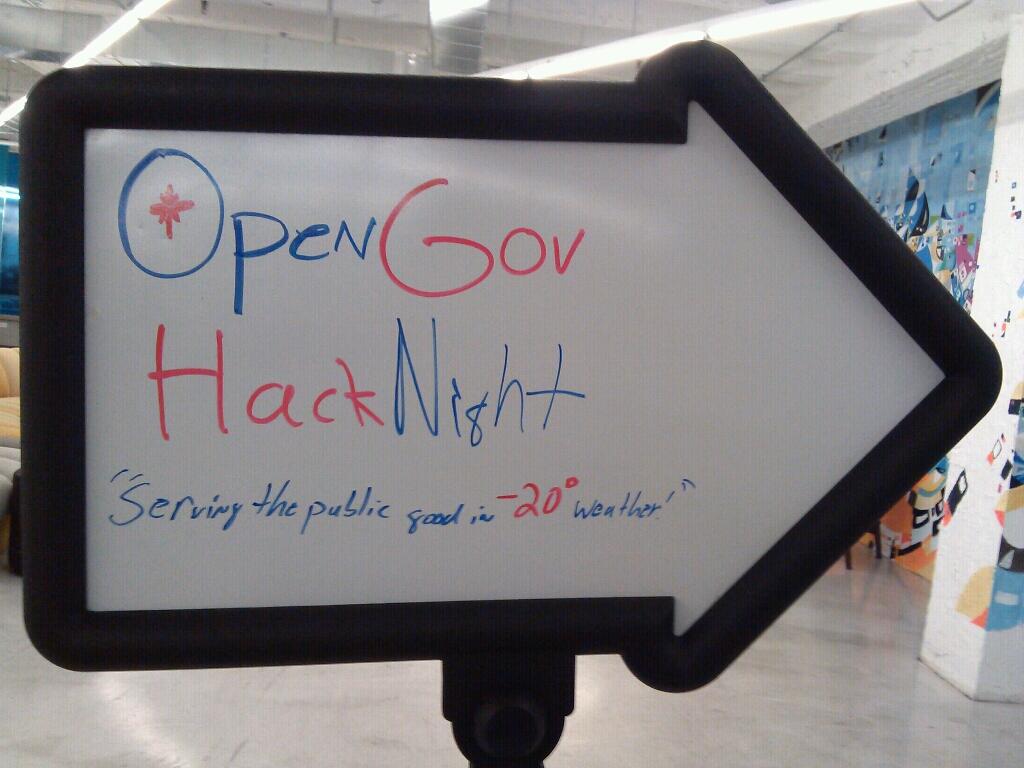 OpenGov
HackNight
"Serving the public good in -20° weather!"